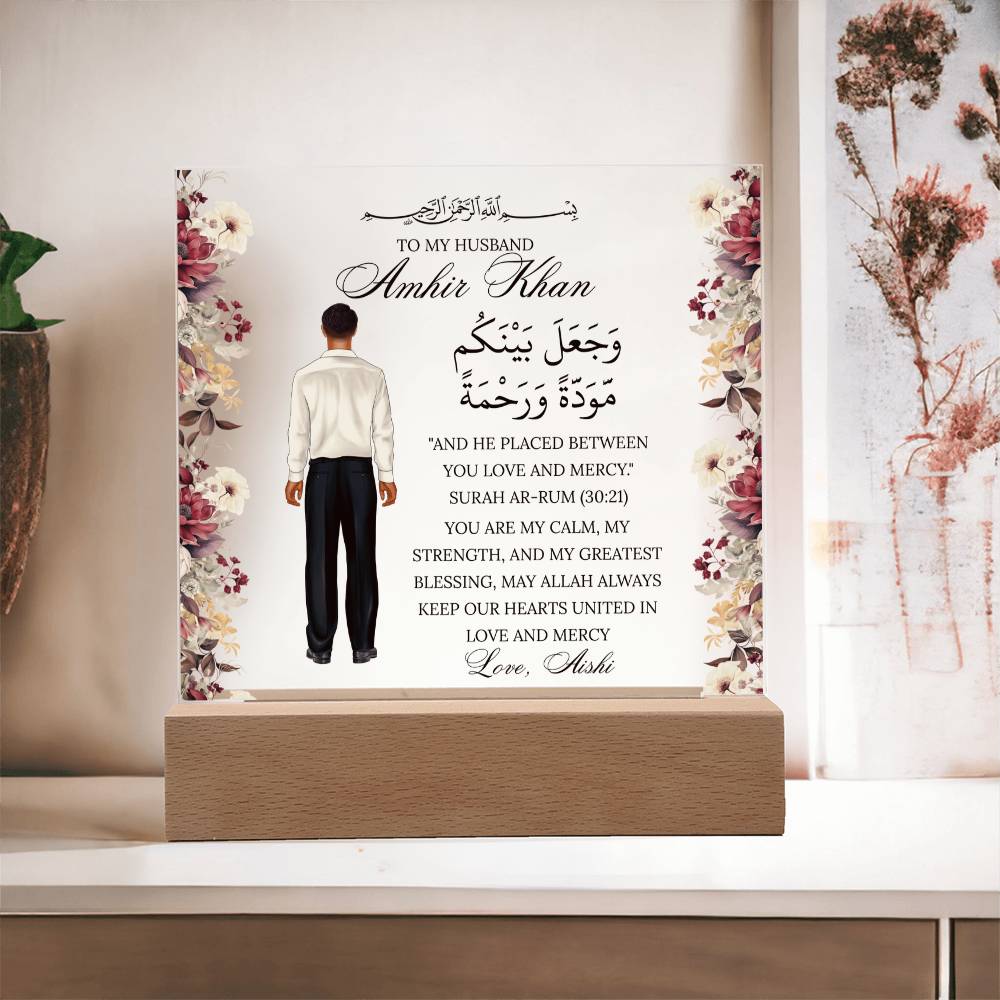 بِسْمِ اللَّهِ الرَّحْمَٰنِ الرَّحِيمِ
TO MY HUSBAND
Amhir Khan
وَجَعَلَ بَيْنَكُم
مَّوَدَّةً وَرَحْمَةً
"AND HE PLACED BETWEEN
YOU LOVE AND MERCY."
SURAH AR-RUM (30:21)
YOU ARE MY CALM, MY
STRENGTH, AND MY GREATEST
BLESSING, MAY ALLAH ALWAYS
KEEP OUR HEARTS UNITED IN
LOVE AND MERCY
Love, Aishi